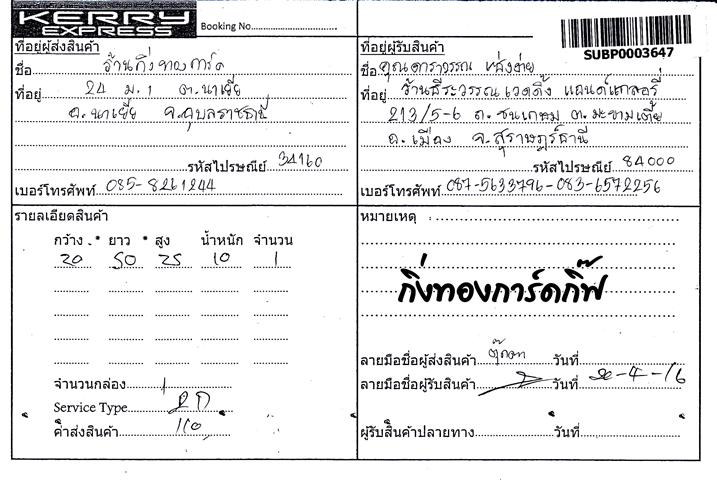 KERRY
EXPRESS
Booking No
SUBP0003647
ที่อยู่ผู้ส่งสินค้า
ชื่อ ร้านกิ่งทองการ์ด
ที่อยู่ 24 ม.1 ต.นาเยีย
อ.นาเยีย จ.อุบลราชธานี
รหัสไปรษณีย์ 34160
เบอร์โทรศัพท์ 085-8261244
ที่อยู่ผู้รับสินค้า
ชื่อ คุณดาราวรรณ
ที่อยู่ ร้านธีระวรรณเวดดิ้ง แอนด์แกลอรี่
213/5-6 ถ.ชนเกษม ต.มะขามเตี้ย
อ.เมือง จ.สุราษฎร์ธานี
รหัสไปรษณีย์ 84000
เบอร์โทรศัพท์ 087-5633796-083-6572256
รายละเอียดสินค้า
กว้าง * ยาว * สูง น้ำหนัก จำนวน
20 50 25 10 1
จำนวนกล่อง 1
Service Type 2D
ค่าส่งสินค้า 110
หมายเหตุ :
กิ่งทองการ์ดกิ๊ฟ
ลายมือชื่อผู้ส่งสินค้า ตุ๊กตา วันที่
ลายมือชื่อผู้รับสินค้า วันที่ -4-16
ผู้รับสินค้าปลายทาง วันที่